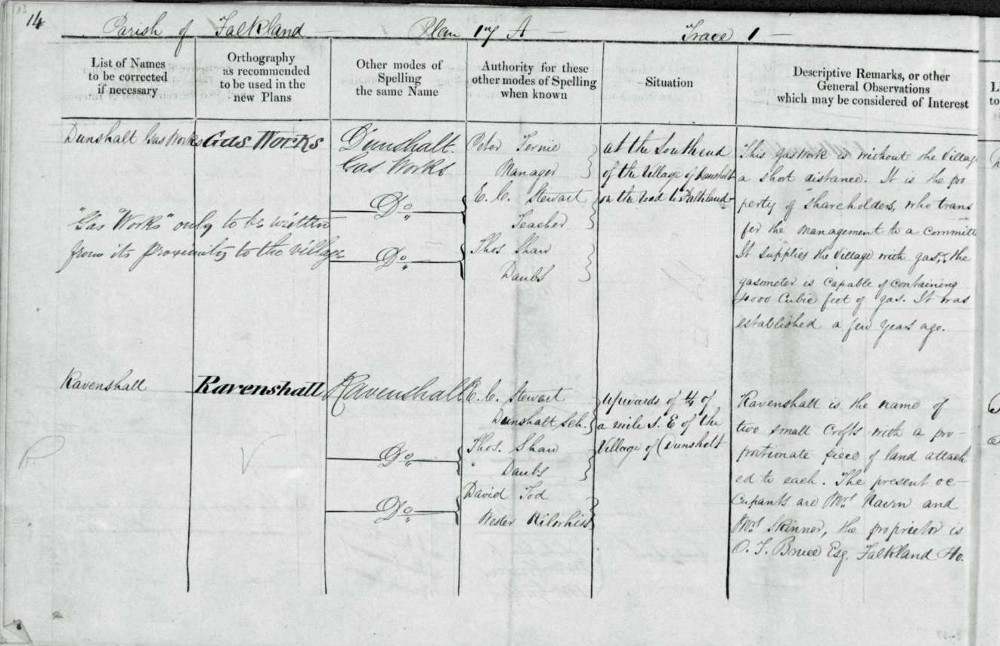 14
Parish of Falkland — Plan 17 A — Trace 1 —
List of Names
to be corrected
if necessary
Orthography
as recommended
to be used in the
new Plans
Other modes of
Spelling
the same Name
Authority for these
other modes of Spelling
when known
Situation
Descriptive Remarks, or other
General Observations
which may be considered of Interest
Dunshalt Gas Works
"Gas Works" only to be written
from its proximity to the village
Gas Works
Dunshalt
Gas Works
Do.
Do.
Peter Ternie
Manager
E. C. Stewart
Teacher
Thos. Shaw
Daubs
at the South end
of the village of Dunshelt
on the road to Falkland
This gaswork is without the Village
a short distance. It is the pro
perty of shareholders, who trans
fer the management to a committe
It supplies the village with gas, the
gasometer is capable of containing
4000 Cubic feet of gas. It was
established a few years ago.
Ravenshall
Ravenshall
Ravenshall
Do.
Do.
E. C. Stewart
Dunshalt Sch.
Thos. Shaw
Daubs
David Tod
Wester Kilwhiss
Upwards of ¼ of
a mile S. E of the
Village of Dunshelt
Ravenshall is the name of
two small Crofts with a pro-
portionate piece of land attach
ed to each. The present oc-
cupants are Mrs Nairn and
Mrs Skinner, the proprietor is
O. T. Bruce Esq. Falkland Ho.